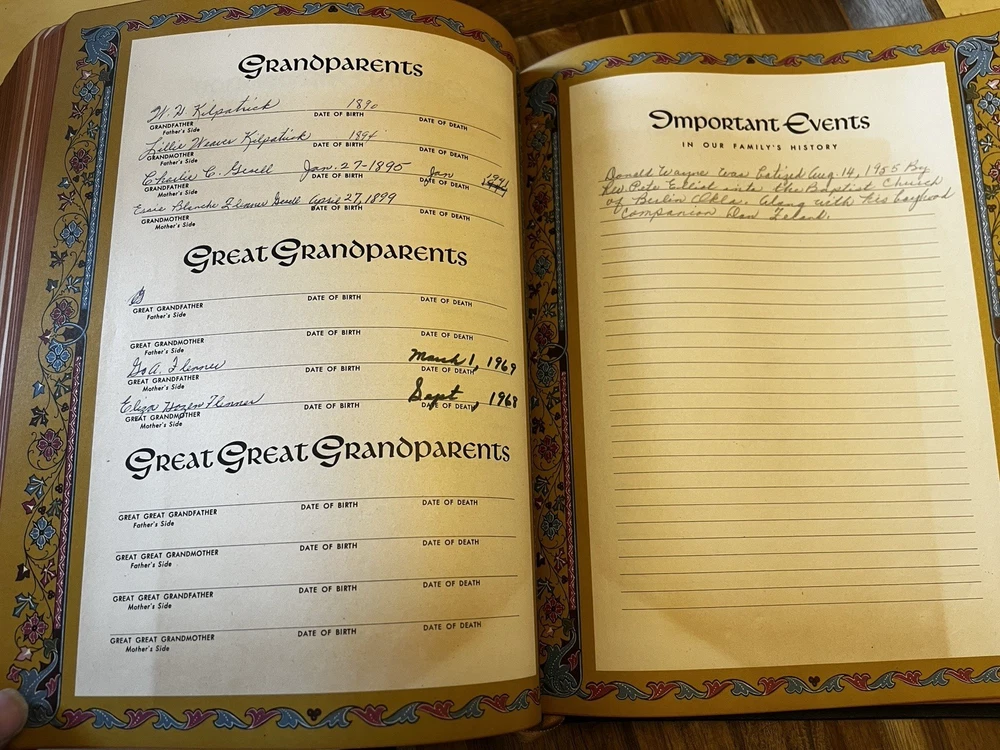 Grandparents
W. D Kilpatrick 1890
GRANDFATHER DATE OF BIRTH DATE OF DEATH
Father's Side
Lillie Weaver Kilpatrick 1894
GRANDMOTHER DATE OF BIRTH DATE OF DEATH
Father's Side
Charlie C. Jan. 27-1895 Jan
GRANDFATHER DATE OF BIRTH DATE OF DEATH
Mother's Side
Essie Blanche Flenner April 27, 1899
GRANDMOTHER DATE OF BIRTH DATE OF DEATH
Mother's Side
Great Grandparents
GREAT GRANDFATHER DATE OF BIRTH DATE OF DEATH
Father's Side
GREAT GRANDMOTHER DATE OF BIRTH DATE OF DEATH
Father's Side
A. Flenner March 1, 1969
GREAT GRANDFATHER DATE OF BIRTH DATE OF DEATH
Mother's Side
Eliza Hozen Flenner Sept , 1968
GREAT GRANDMOTHER DATE OF BIRTH DATE OF DEATH
Mother's Side
Great Great Grandparents
GREAT GREAT GRANDFATHER DATE OF BIRTH DATE OF DEATH
Father's Side
GREAT GREAT GRANDMOTHER DATE OF BIRTH DATE OF DEATH
Father's Side
GREAT GREAT GRANDFATHER DATE OF BIRTH DATE OF DEATH
Mother's Side
GREAT GREAT GRANDMOTHER DATE OF BIRTH DATE OF DEATH
Mother's Side
Important Events
IN OUR FAMILY'S HISTORY
Donald Wayne was Batized Aug 14, 1955 By
Rev. Pete Elliot into the Baptist Church
of Berlin Okla. Along with his boyhood
companion Dan Leland.